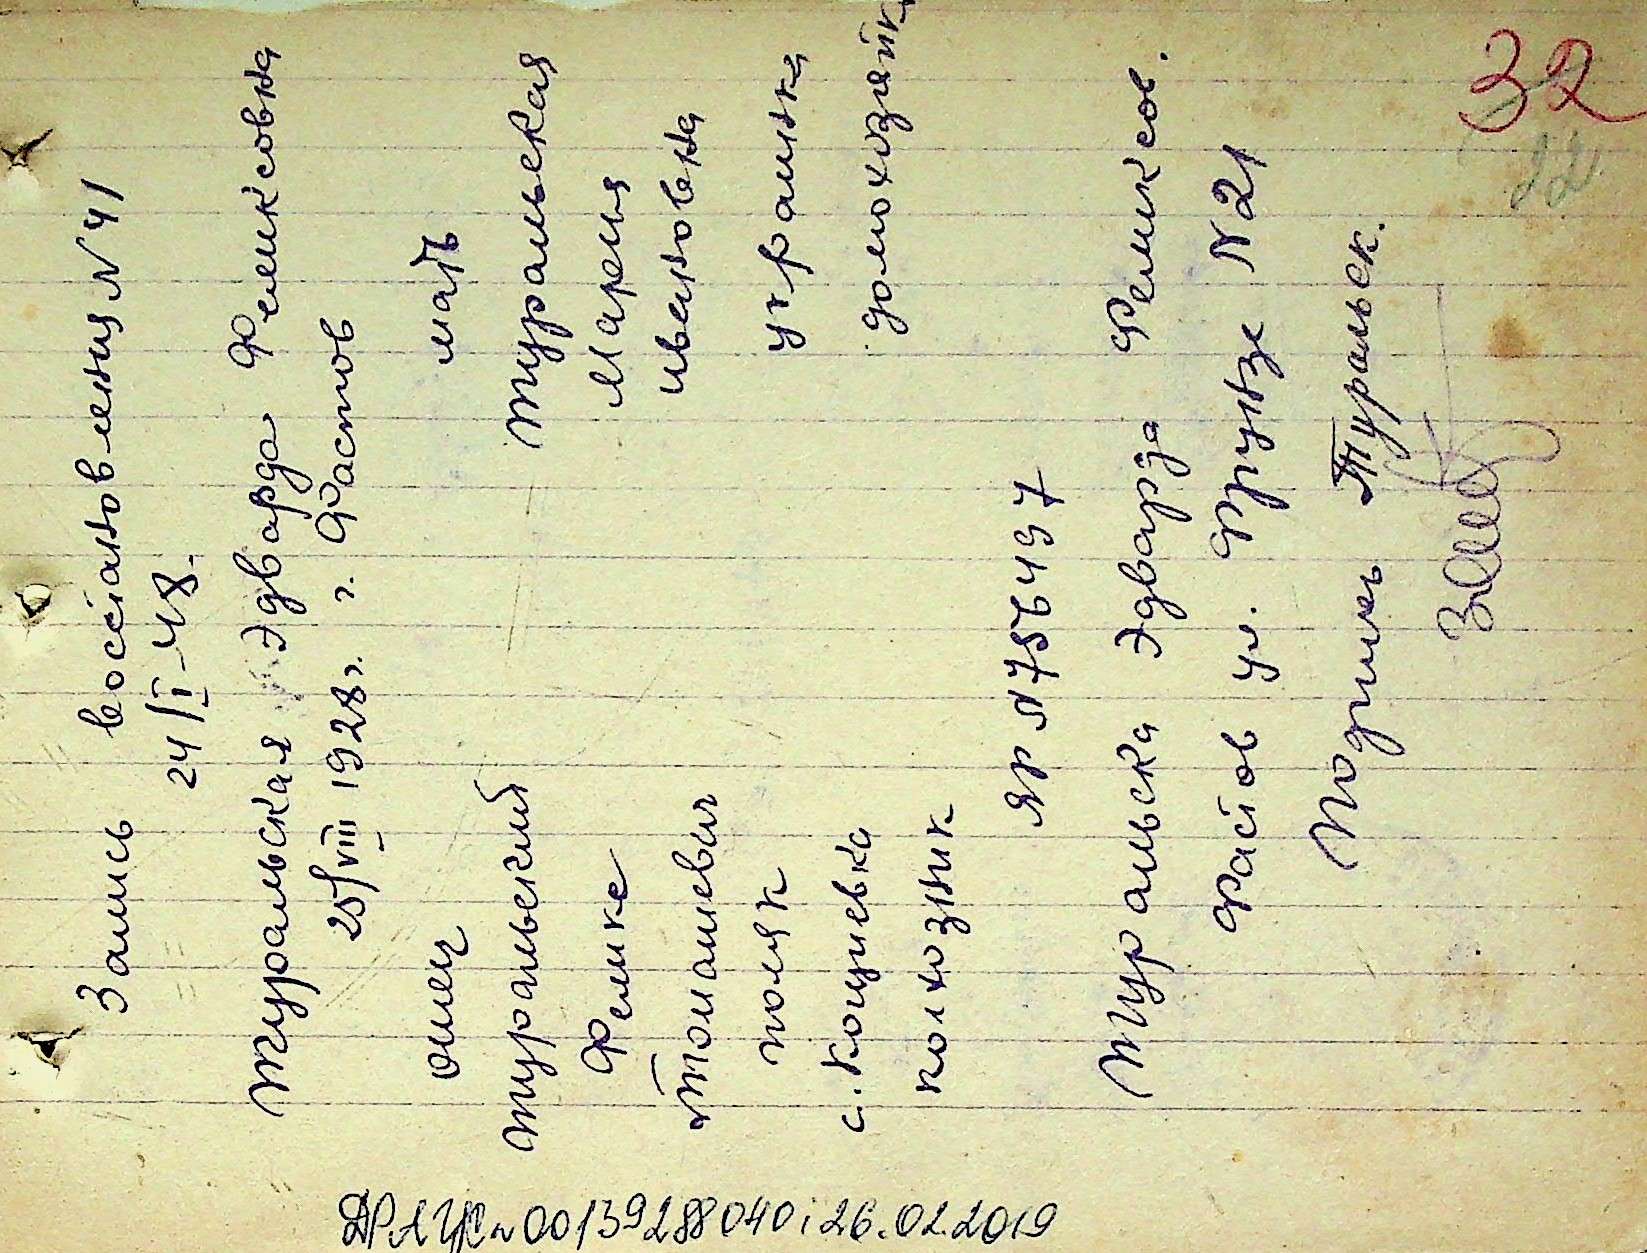 32
22
Запись восстановления N 41
24/I-48.
Туральская Эдварда Феликсовна
25/VIII 1928 г. г. Фастов
отец мать
Туральский Туральская
Феликс Мария
Томашевич Ивановна
поляк украинка
с. Кощиевка домохозяйка
колхозник
ЯР N 756497
Туральска Эдварда Феликсов.
Фастов ул. Фрунзе N 21
Подпись Туральск.
ДРАЦС N 00139288040 i 26.02.2019